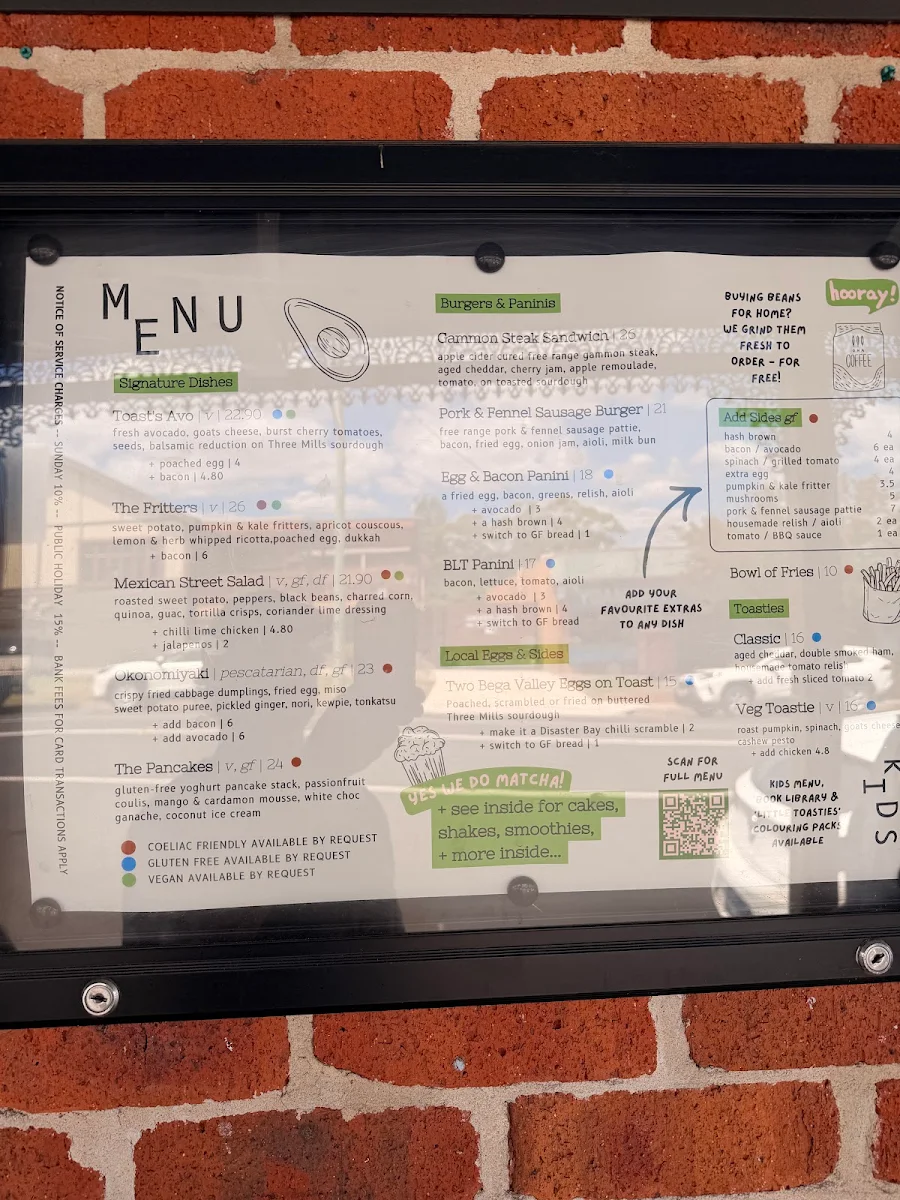 NOTICE OF SERVICE CHARGES -- SUNDAY 10% -- PUBLIC HOLIDAY 15% -- BANK FEES FOR CARD TRANSACTIONS APPLY
MENU
Signature Dishes
Toast's Avo | v | 22.90
fresh avocado, goats cheese, burst cherry tomatoes,
seeds, balsamic reduction on Three Mills sourdough
+ poached egg | 4
+ bacon | 4.80
The Fritters | v | 26
sweet potato, pumpkin & kale fritters, apricot couscous,
lemon & herb whipped ricotta,poached egg, dukkah
+ bacon | 6
Mexican Street Salad | v, gf, df | 21.90
roasted sweet potato, peppers, black beans, charred corn,
quinoa, guac, tortilla crisps, coriander lime dressing
+ chilli lime chicken | 4.80
+ jalapeños | 2
Okonomiyaki | pescatarian, df, gf | 23
crispy fried cabbage dumplings, fried egg, miso
sweet potato puree, pickled ginger, nori, kewpie, tonkatsu
+ add bacon | 6
+ add avocado | 6
The Pancakes | v, gf | 24
gluten-free yoghurt pancake stack, passionfruit
coulis, mango & cardamon mousse, white choc
ganache, coconut ice cream
COELIAC FRIENDLY AVAILABLE BY REQUEST
GLUTEN FREE AVAILABLE BY REQUEST
VEGAN AVAILABLE BY REQUEST
Burgers & Paninis
Gammon Steak Sandwich | 26
apple cider cured free range gammon steak,
aged cheddar, cherry jam, apple remoulade,
tomato, on toasted sourdough
Pork & Fennel Sausage Burger | 21
free range pork & fennel sausage pattie,
bacon, fried egg, onion jam, aioli, milk bun
Egg & Bacon Panini | 18
a fried egg, bacon, greens, relish, aioli
+ avocado | 3
+ a hash brown | 4
+ switch to GF bread | 1
BLT Panini | 17
bacon, lettuce, tomato, aioli
+ avocado | 3
+ a hash brown | 4
+ switch to GF bread
Local Eggs & Sides
Two Bega Valley Eggs on Toast | 15
Poached, scrambled or fried on buttered
Three Mills sourdough
+ make it a Disaster Bay chilli scramble | 2
+ switch to GF bread | 1
YES WE DO MATCHA!
+ see inside for cakes,
shakes, smoothies,
+ more inside...
BUYING BEANS
FOR HOME?
WE GRIND THEM
FRESH TO
ORDER - FOR
FREE!
hooray!
COFFEE
Add Sides gf
hash brown 4
bacon / avocado 6 ea
spinach / grilled tomato 4 ea
extra egg 4
pumpkin & kale fritter 3.5
mushrooms 5
pork & fennel sausage pattie 7
housemade relish / aioli 2 ea
tomato / BBQ sauce 1 ea
ADD YOUR
FAVOURITE EXTRAS
TO ANY DISH
Bowl of Fries | 10
Toasties
Classic | 16
aged cheddar, double smoked ham,
housemade tomato relish
+ add fresh sliced tomato 2
Veg Toastie | v | 16
roast pumpkin, spinach, goats cheese
cashew pesto
+ add chicken 4.8
SCAN FOR
FULL MENU
KIDS MENU,
BOOK LIBRARY &
'LITTLE TOASTIES'
COLOURING PACKS
AVAILABLE
KIDS